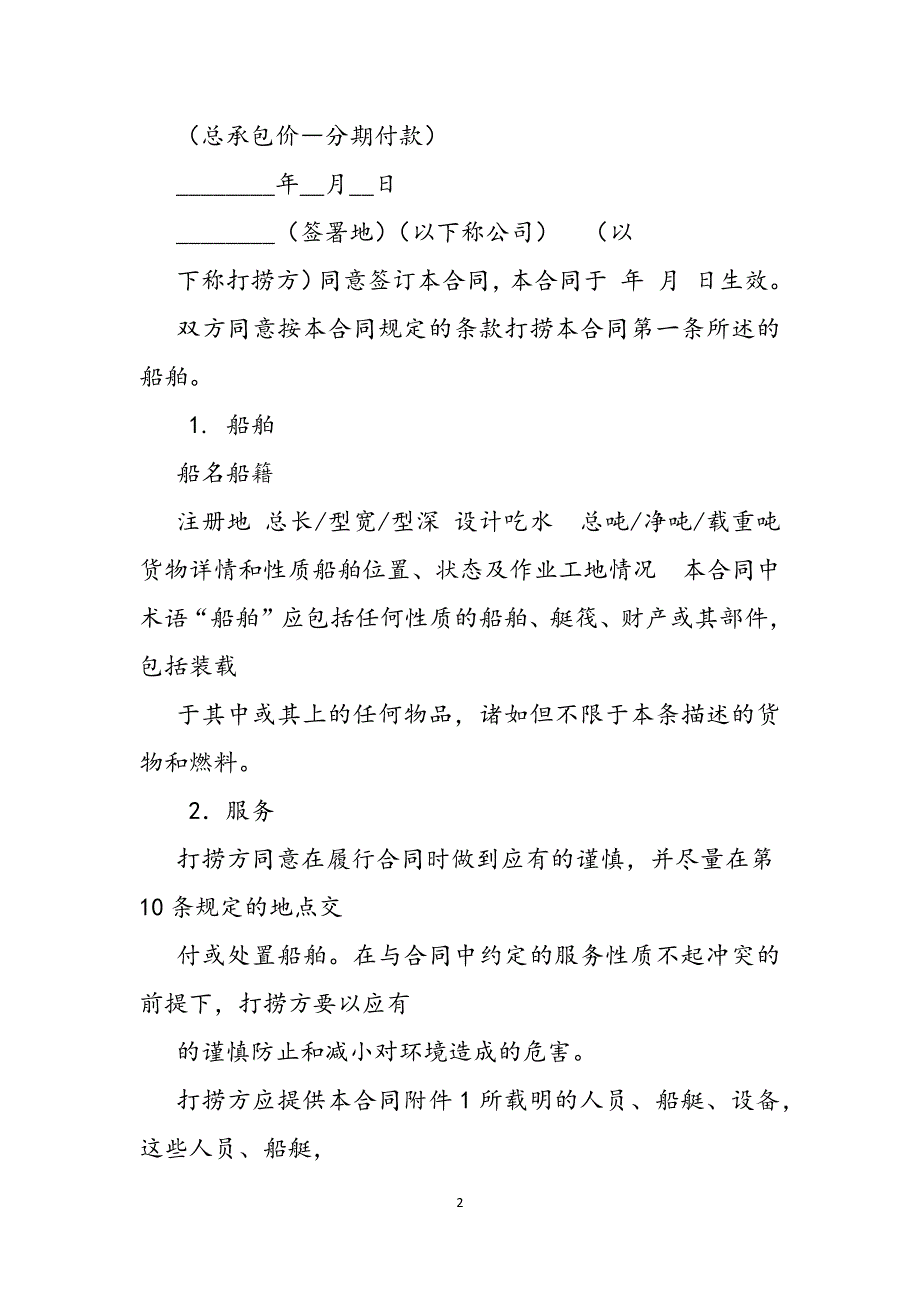 （总承包价—分期付款）
________年__月__日
________（签署地）（以下称公司）　（以
下称打捞方）同意签订本合同，本合同于 年 月 日生效。
双方同意按本合同规定的条款打捞本合同第一条所述的
船舶。
1. 船舶
船名船籍
注册地 总长/型宽/型深 设计吃水　总吨/净吨/载重吨
货物详情和性质船舶位置、状态及作业工地情况　本合同中
术语“船舶”应包括任何性质的船舶、艇筏、财产或其部件，
包括装载
于其中或其上的任何物品，诸如但不限于本条描述的货
物和燃料。
2．服务
打捞方同意在履行合同时做到应有的谨慎，并尽量在第
10 条规定的地点交
付或处置船舶。在与合同中约定的服务性质不起冲突的
前提下，打捞方要以应有
的谨慎防止和减小对环境造成的危害。
打捞方应提供本合同附件 1 所载明的人员、船艇、设备，
这些人员、船艇，
2